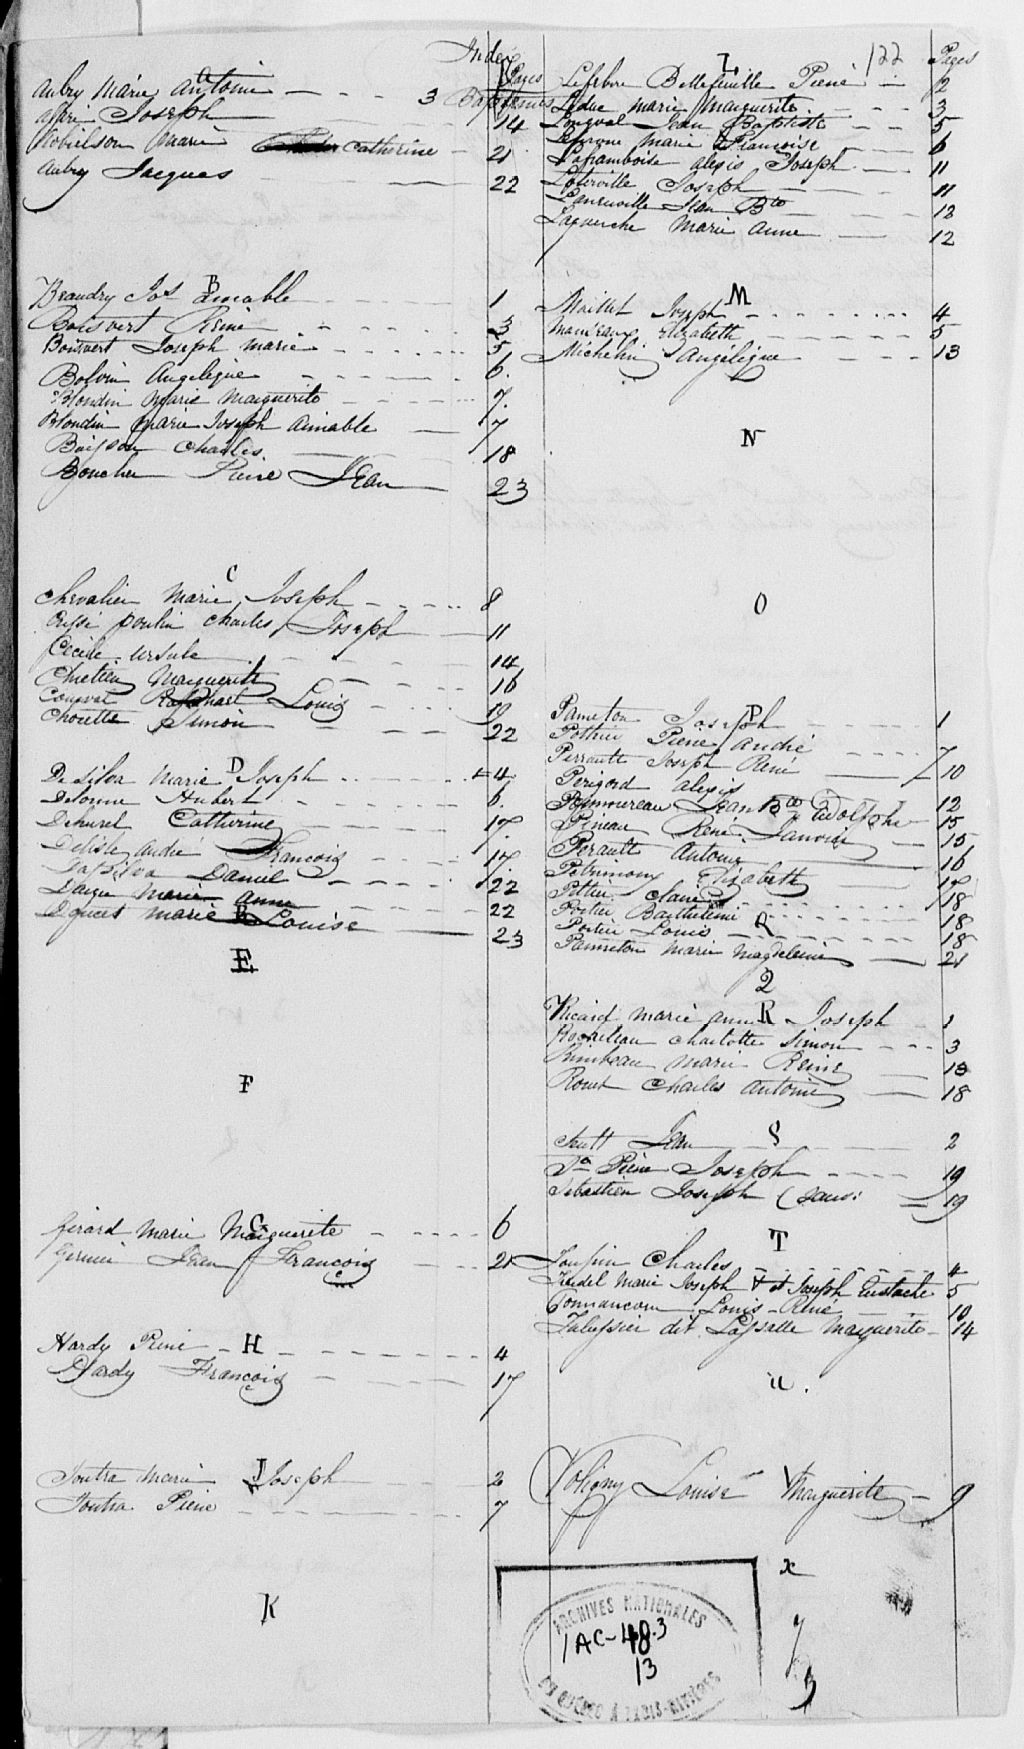 Index
A
Pages
Baptêmes
Aubry Marie Antoine 3
Joseph 14
Robielson Marie Catherine 21
Aubry Jacques 22
B
Beaudry Jos aimable 1
Boisvert Reine 3
Boisvert Joseph Marie 5
Bolvin Angelique 6
Blondin Marie Marguerite 7
Blondin Marie Joseph Aimable 7
Charles 18
Boucher Pierre Jean 23
C
Chevalier Marie Joseph 8
poulin Charles Joseph 11
Cecile Ursule 14
Chretien Marguerite 16
Courval Raphael Louis 19
Chorette Simon 22
D
De Silva Marie Joseph 4
Delorme Hubert 6
Catherine 17
Delisle André François 17
DaSilva Daniel 22
Marie Anne 22
Marie Louise 23
E
F
G
Gerard Marie Marguerite 6
Jean François 21
H
Hardy Pierre 4
Hardy François 17
J
Joutra Marie Joseph 2
Joutra Pierre 7
K
122
L
Pages
Lefebvre Bellefeuille Pierre 2
Leduc Marie Marguerite 3
Longval Jean Baptiste 5
Marie Françoise 6
Laframboise alexis Joseph 11
Joseph 11
Jean Bte 12
Marie Anne 12
M
Maillet Joseph 4
Elizabeth 5
Michelin Angelique 13
N
O
P
Panneton Joseph 1
Pothier Pierre André 7
Perrault Joseph René 10
Perigord alexis 12
Pommereau Jean Bte Adolphe 15
Pineau René Janvier 15
Perault Antoine 16
Patrimony Elizabeth 17
Pottier Claire 18
Portier Barthelemi 18
Portier Louis 18
Panneton Marie Magdeleine 21
Q
R
Ricard Marie Anne Joseph 1
Rocheleau Charlotte Simon 3
Rimbeau Marie Reine 13
Charles Antoine 18
S
Scutt Jean 2
Pierre Joseph 19
Sebastien Joseph 19
T
Toupin Charles 4
Marie Joseph et Joseph Eustache 5
Tonnancour Louis-René 10
dit Lassalle Marguerite 14
U.
V
Voligny Louise Marguerite 9
X
Y
Z
ARCHIVES NATIONALES
1AC-48.3
13
DU QUÉBEC À TROIS-RIVIÈRES